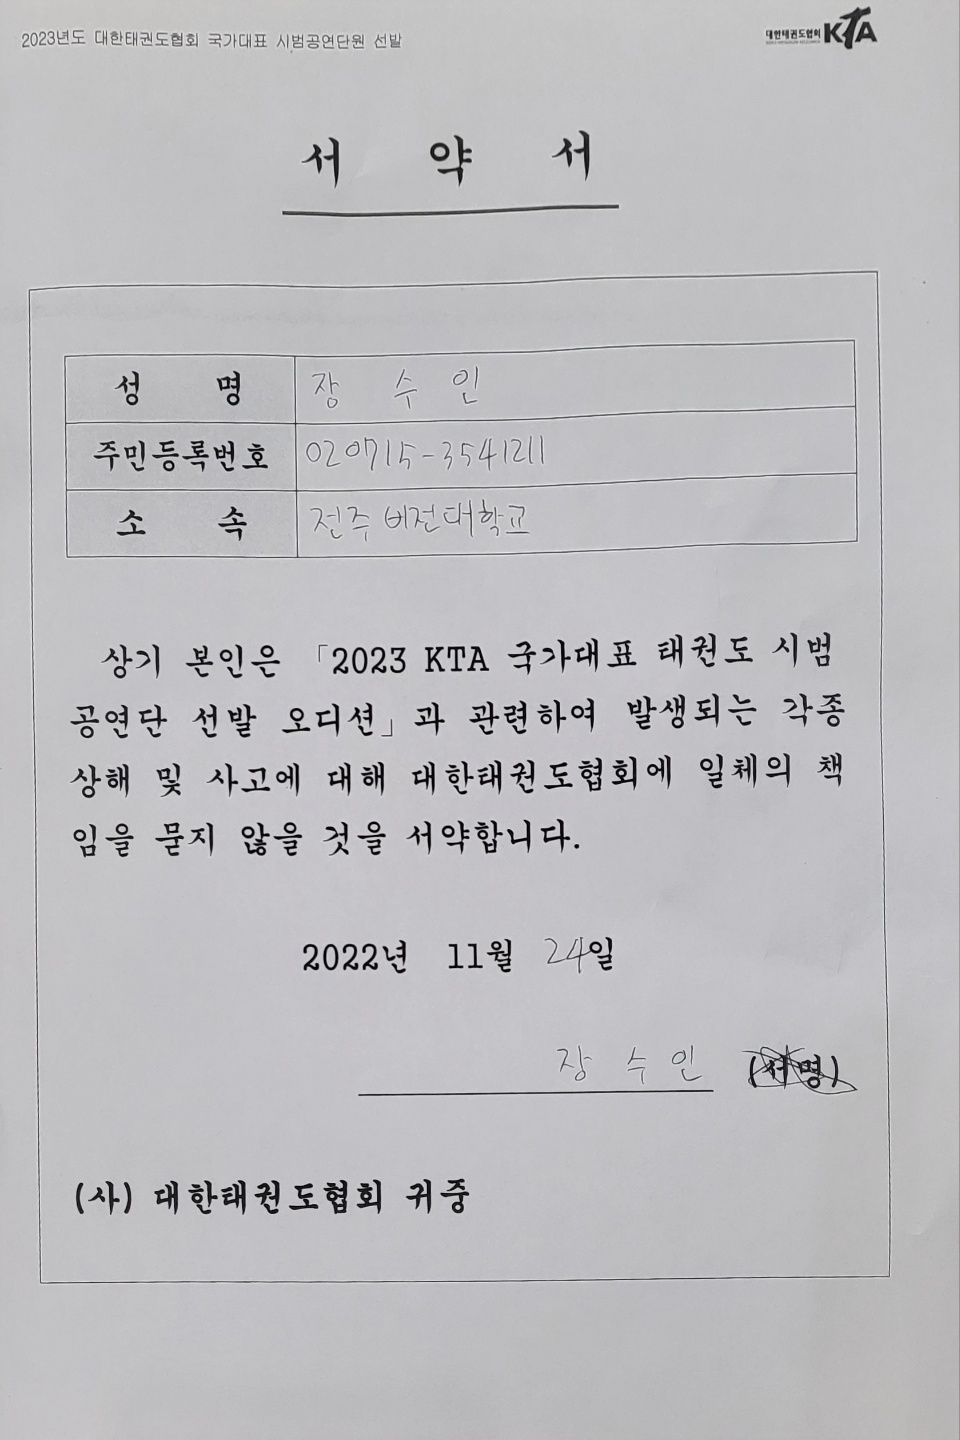 2023년도 대한태권도협회 국가대표 시범공연단원 선발
대한태권도협회 KTA
서 약 서
성 명 장 수 인
주민등록번호 020715-3541211
소 속 전주비전대학교
상기 본인은 「2023 KTA 국가대표 태권도 시범
공연단 선발 오디션」과 관련하여 발생되는 각종
상해 및 사고에 대해 대한태권도협회에 일체의 책
임을 묻지 않을 것을 서약합니다.
2022년 11월 24일
장 수 인 (서명)
(사) 대한태권도협회 귀중